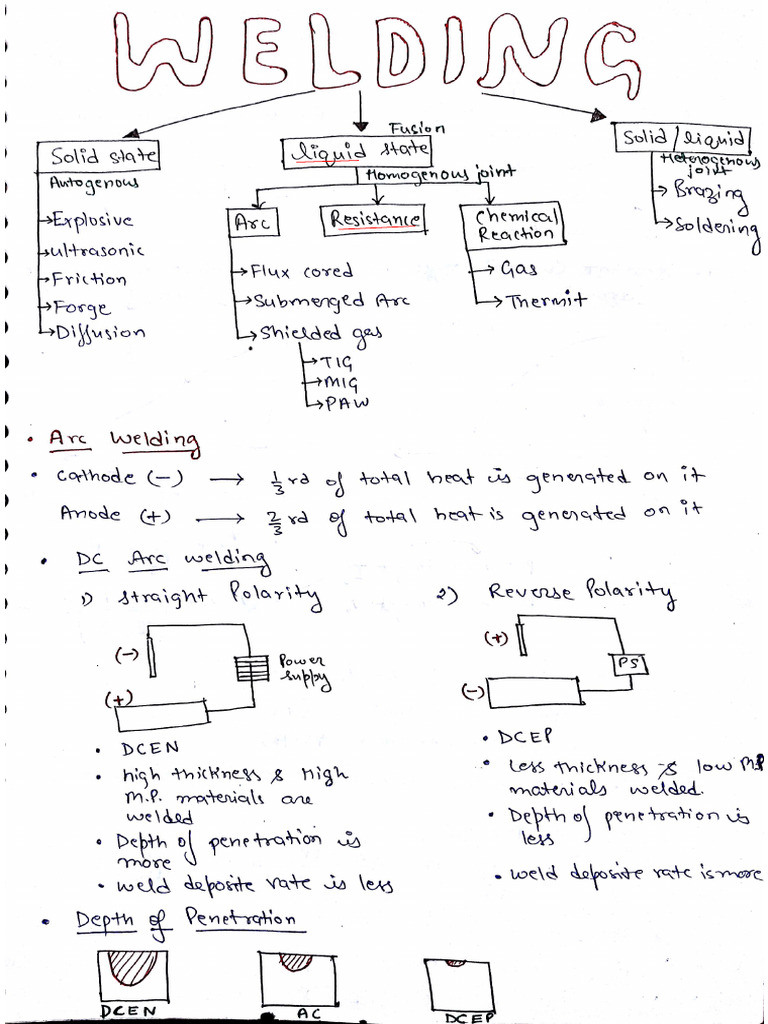 WELDING
Fusion
Solid state
liquid state
Solid/liquid
Autogenous
Homogenous joint
Heterogenous
joint
→Explosive
→ultrasonic
→Friction
→Forge
→Diffusion
Arc
Resistance
Chemical
Reaction
→Brazing
→Soldering
→Flux cored
→Submenged Arc
→Shielded gas
→TIG
→MIG
→PAW
→Gas
→Thermit
• Arc Welding
• Cathode (-) → 1/3 rd of total heat is generated on it
Anode (+) → 2/3 rd of total heat is generated on it
• DC Arc welding
1) Straight Polarity
(-)
(+)
Power
supply
• DCEN
• high thickness & High
M.P. materials are
welded
• Depth of penetration is
more
• weld deposite rate is less
2) Reverse Polarity
(+)
(-)
PS
• DCEP
• Less thickness & low MP
materials welded.
• Depth of penetration is
less
• weld deposite rate is more
• Depth of Penetration
DCEN
AC
DCEP